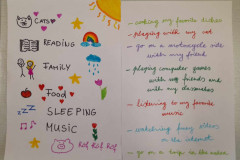 CATS
READING
FAMILY
FOOD
SLEEPING
MUSIC
- cooking my favorite dishes
- playing with my cat
- go on a motorcycle ride
with my friend
- playing computer games
with my friends and
with my
- listening to my favorite
music
- watching funny videos
on the internet
- go on a trip in the